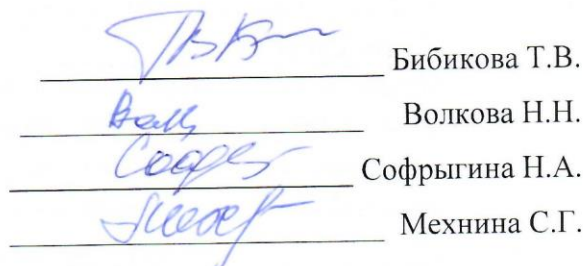 Бибикова Т.В.
Волкова Н.Н.
Софрыгина Н.А.
Мехнина С.Г.